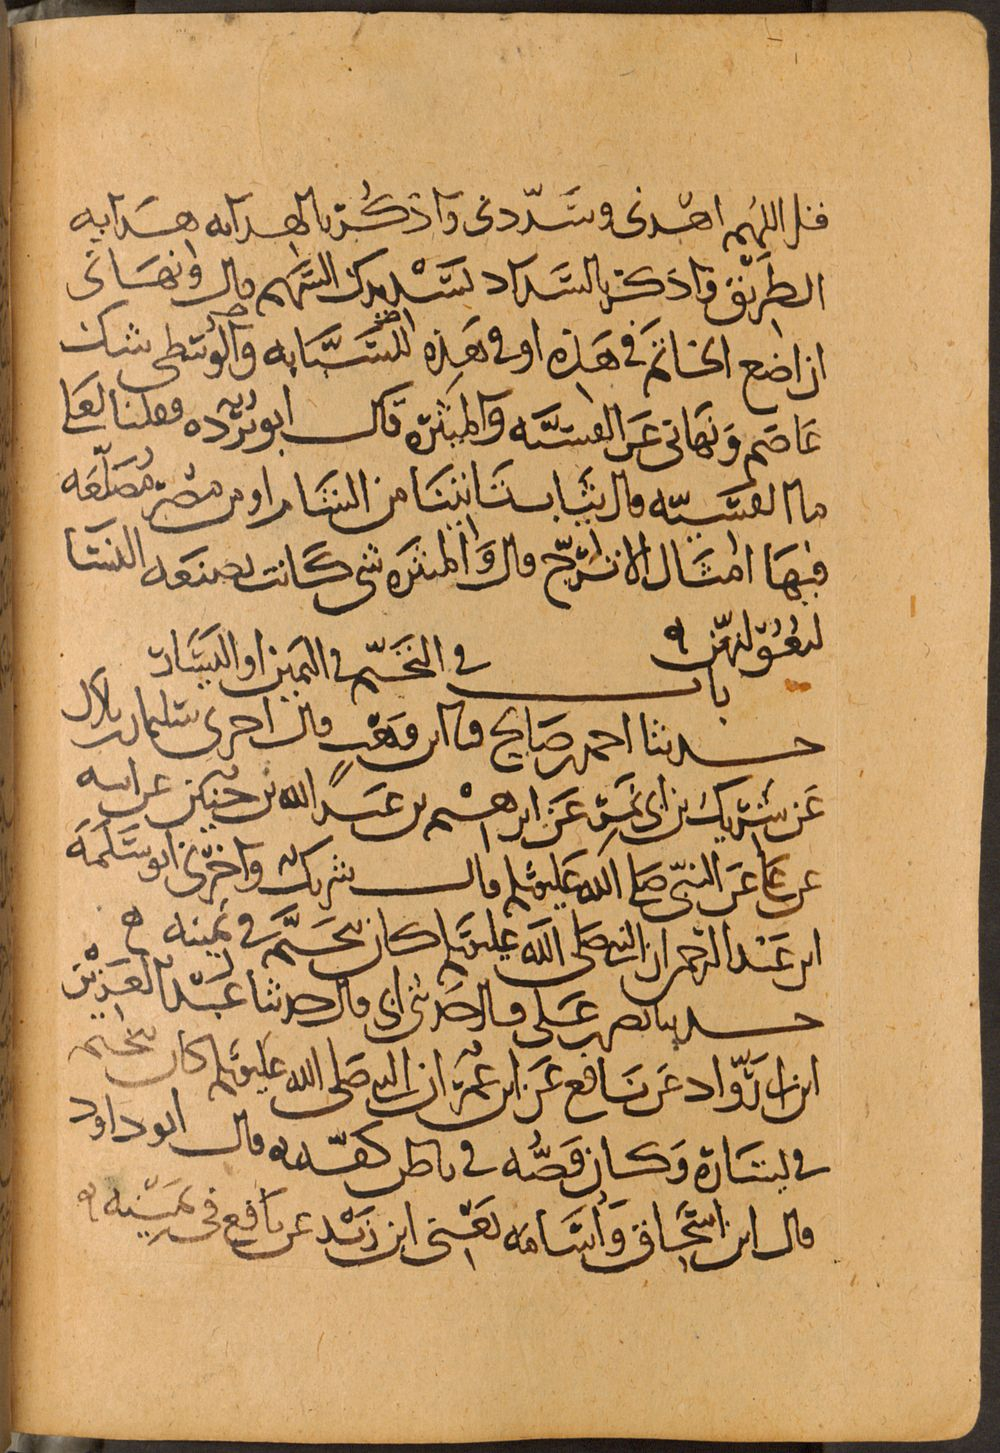 قل اللهم اهدنى وسددنى واذكر بالهدايه هدايه
الطريق واذكر بالسداد تسديدك السهم قال ونهانى
ان اضع الخاتم فى هذه او فى هذه للسبابه والوسطى شك
عاصم ونهانى عن القسيه والميثره قال ابو برده فقلنا لعلى
ما القسيه قال ثياب تاتينا من الشام او من مصر مضلعه
فيها امثال الاترج قال والميثره شى كانت تصنعه النسا
لبعولتهن
باب فى التختم فى اليمين او اليسار
حدثنا احمد بن صالح قال ابن وهب قال اخبرنى سليمان بن بلال
عن شريك بن ابى نمر عن ابرهيم بن عبد الله بن حنين عن ابيه
عن على عن النبى صلى الله عليه وسلم قال شريك واخبرنى ابو سلمه
ابن عبد الرحمن ان النبى صلى الله عليه وسلم كان يتختم فى يمينه
حدثنا نصر بن على قال حدثنى ابى قال حدثنا عبد العزيز
ابن ابى رواد عن نافع عن ابن عمر ان النبى صلى الله عليه وسلم كان يتختم
فى يساره وكان فصه فى باطن كفه قال ابو داود
قال ابن اسحاق واسامه يعنى ابن زيد عن نافع فى يمينه